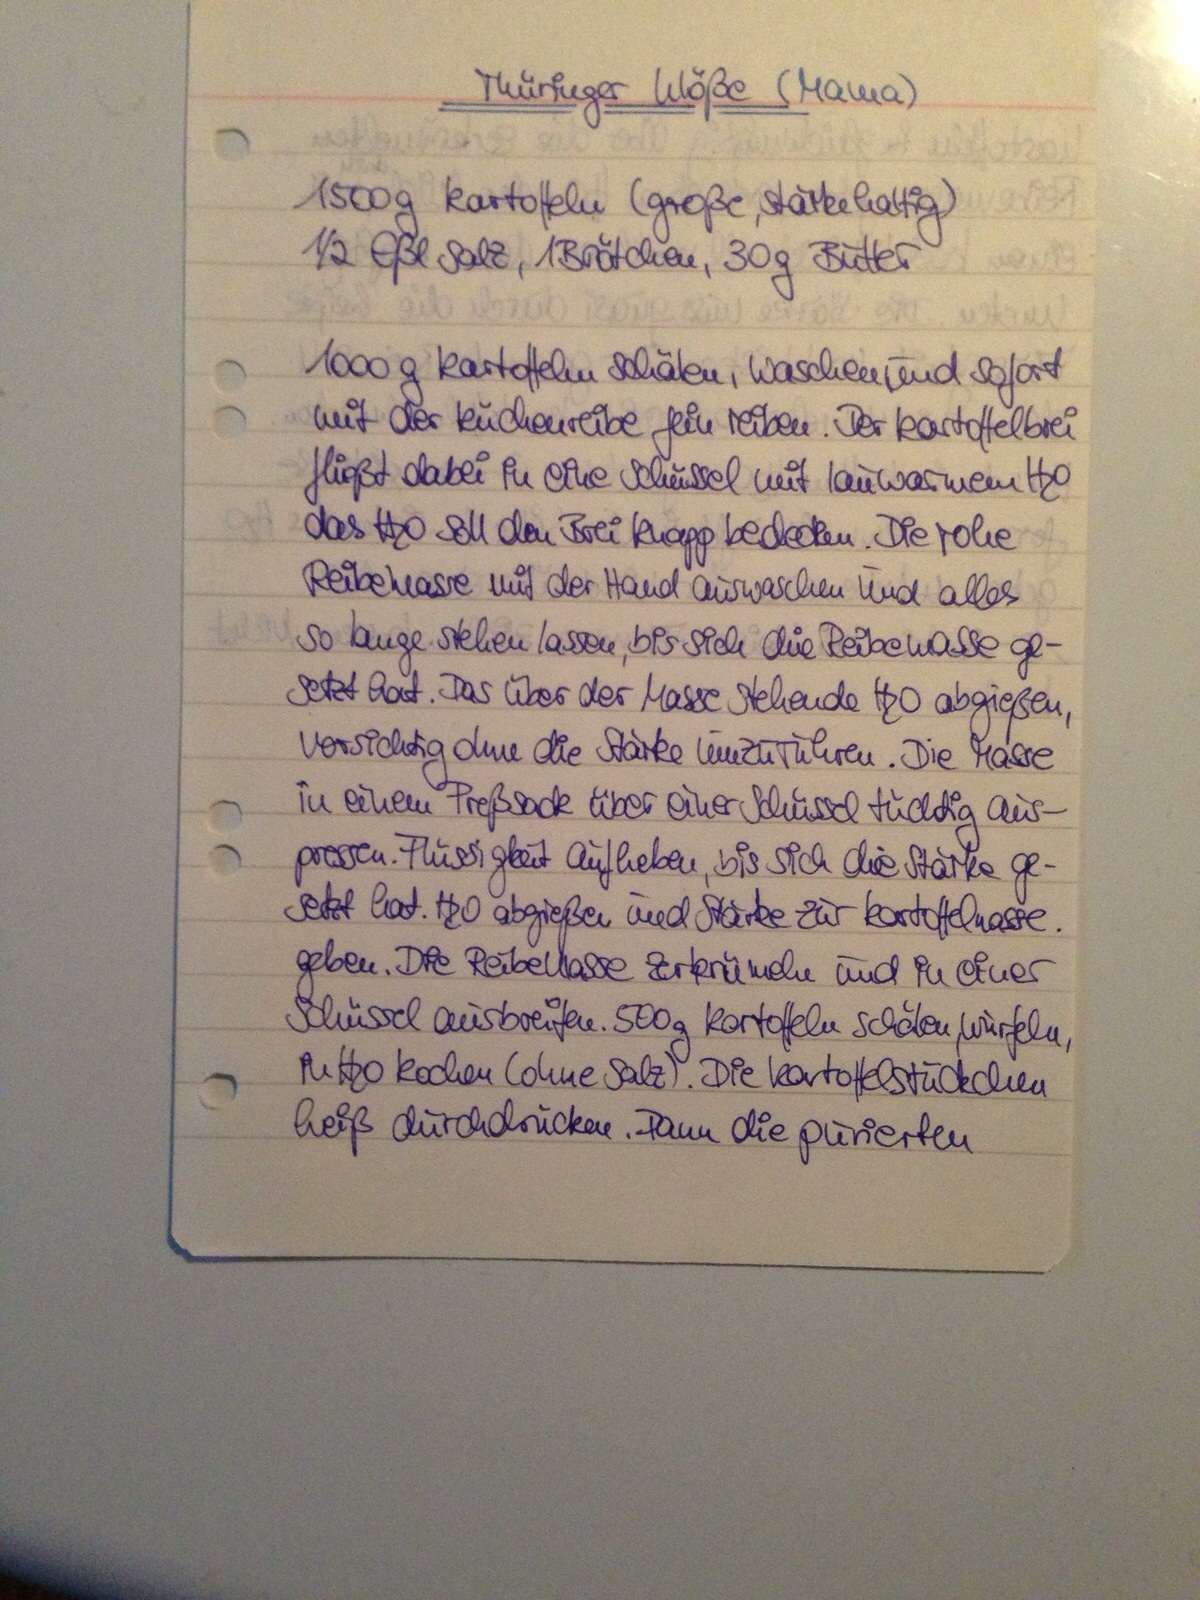 Thüringer Klöße (Mama)
1500g Kartoffeln (große, stärkehaltig)
1/2 Eßl Salz, 1 Brötchen, 30g Butter
1000 g Kartoffeln schälen, waschen und sofort
mit der Küchenreibe fein reiben. Der Kartoffelbrei
fließt dabei in eine Schüssel mit lauwarmem H2O
das H2O soll den Brei knapp bedecken. Die rohe
Reibemasse mit der Hand auswaschen und alles
so lange stehen lassen, bis sich die Reibemasse ge-
setzt hat. Das über der Masse stehende H2O abgießen,
vorsichtig ohne die Stärke umzurühren. Die Masse
in einem Preßsack über einer Schüssel tüchtig aus-
pressen. Flüssigkeit aufheben, bis sich die Stärke ge-
setzt hat. H2O abgießen und Stärke zur Kartoffelmasse.
geben. Die Reibemasse zerkrümeln und in einer
Schüssel ausbreiten. 500g Kartoffeln schälen, würfeln,
in H2O kochen (ohne Salz). Die Kartoffelstückchen
heiß durchdrücken. Dann die pürierten